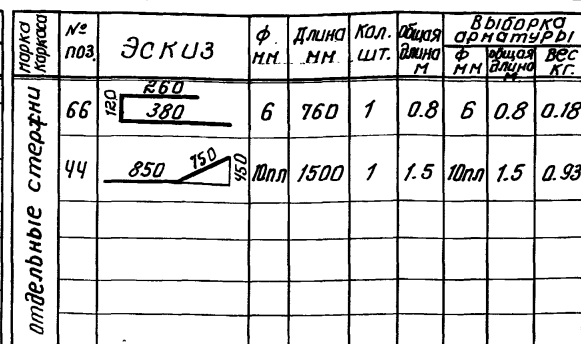 марка каркаса
№ поз.
Эскиз
ф мм
Длина мм
Кол. шт.
общая длина м
Выборка арматуры
ф мм
общая длина м.
Вес кг.
отдельные стержни
66 120 260 380 6 760 1 0.8 6 0.8 0.18
44 850 750 450 10пп 1500 1 1.5 10пп 1.5 0.93